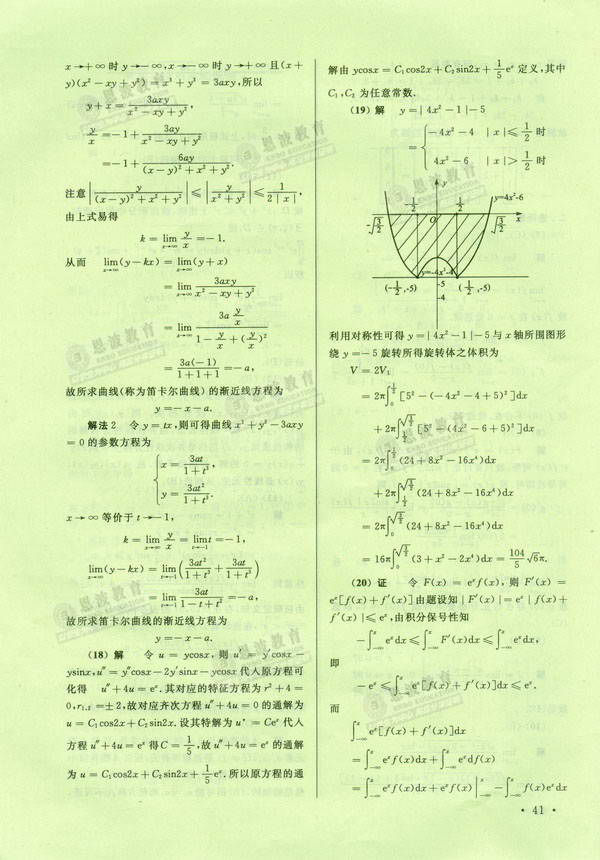 x→+∞时 y→−∞,x→−∞时 y→+∞且(x+
y)(x²−xy+y²)=x³+y³=3axy,所以
y+x=3axy/(x²−xy+y²),
y/x=−1+3ay/(x²−xy+y²)
=−1+6ay/((x−y)²+x²+y²)
注意|y/((x−y)²+x²+y²)|≤|y/(x²+y²)|≤1/(2|x|),
由上式易得
k=lim_{x→∞} y/x=−1.
从而 lim_{x→∞}(y−kx)=lim_{x→∞}(y+x)
=lim_{x→∞} 3axy/(x²−xy+y²)
=lim_{x→∞} (3a y/x)/(1−y/x+(y/x)²)
=3a(−1)/(1+1+1)=−a,
故所求曲线(称为笛卡尔曲线)的渐近线方程为
y=−x−a.
解法2 令 y=tx,则可得曲线 x³+y³−3axy
=0的参数方程为
{x=3at/(1+t³),
y=3at²/(1+t³).
x→∞等价于 t→−1,
k=lim_{x→∞} y/x=lim_{t→−1} t=−1,
lim_{x→∞}(y−kx)=lim_{t→−1}[3at²/(1+t³)+3at/(1+t³)]
=lim_{t→−1} 3at/(1−t+t²)=−a,
故所求笛卡尔曲线的渐近线方程为
y=−x−a.
(18)解 令 u=ycosx,则 u′=y′cosx−
ysinx,u″=y″cosx−2y′sinx−ycosx代入原方程可
化得 u″+4u=eˣ.其对应的特征方程为 r²+4=
0,r₁,₂=±2,故对应齐次方程 u″+4u=0的通解为
u=C₁cos2x+C₂sin2x.设其特解为 u*=Ceˣ代入
方程 u″+4u=eˣ得 C=1/5,故 u″+4u=eˣ的通解
为 u=C₁cos2x+C₂sin2x+1/5eˣ.所以原方程的通
解由 ycosx=C₁cos2x+C₂sin2x+1/5eˣ定义,其中
C₁,C₂为任意常数.
(19)解 y=|4x²−1|−5
={−4x²−4 |x|≤1/2时
4x²−6 |x|>1/2时
−1/2 1/2 y=4x²-6
−√(3/2) O x √(3/2)
y=−4x²−4
(−1/2,-5) -5 (1/2,-5)
-4
利用对称性可得 y=|4x²−1|−5与x轴所围图形
绕 y=−5旋转所得旋转体之体积为
V=2V₁
=2π∫₀^{1/2}[5²−(−4x²−4+5)²]dx
+2π∫_{1/2}^{√(3/2)}[5²−(4x²−6+5)²]dx
=2π∫₀^{1/2}(24+8x²−16x⁴)dx
+2π∫_{1/2}^{√(3/2)}(24+8x²−16x⁴)dx
=2π∫₀^{√(3/2)}(24+8x²−16x⁴)dx
=16π∫₀^{√(3/2)}(3+x²−2x⁴)dx=104/5√6π.
(20)证 令 F(x)=eˣf(x),则 F′(x)=
eˣ[f(x)+f′(x)]由题设知|F′(x)|=eˣ|f(x)+
f′(x)|≤eˣ,由积分保号性知
−∫_{−∞}^{x}eˣdx≤∫_{−∞}^{x}F′(x)dx≤∫_{−∞}^{x}eˣdx,
即
−eˣ≤∫_{−∞}^{x}eˣ[f(x)+f′(x)]dx≤eˣ.
而
∫_{−∞}^{x}eˣ[f(x)+f′(x)]dx
=∫_{−∞}^{x}eˣf(x)dx+∫_{−∞}^{x}eˣdf(x)
=∫_{−∞}^{x}eˣf(x)dx+eˣf(x)|_{−∞}^{x}−∫_{−∞}^{x}eˣf(x)dx
·41·
恩波教育
恩波教育
恩波教育
恩波教育
恩波教育